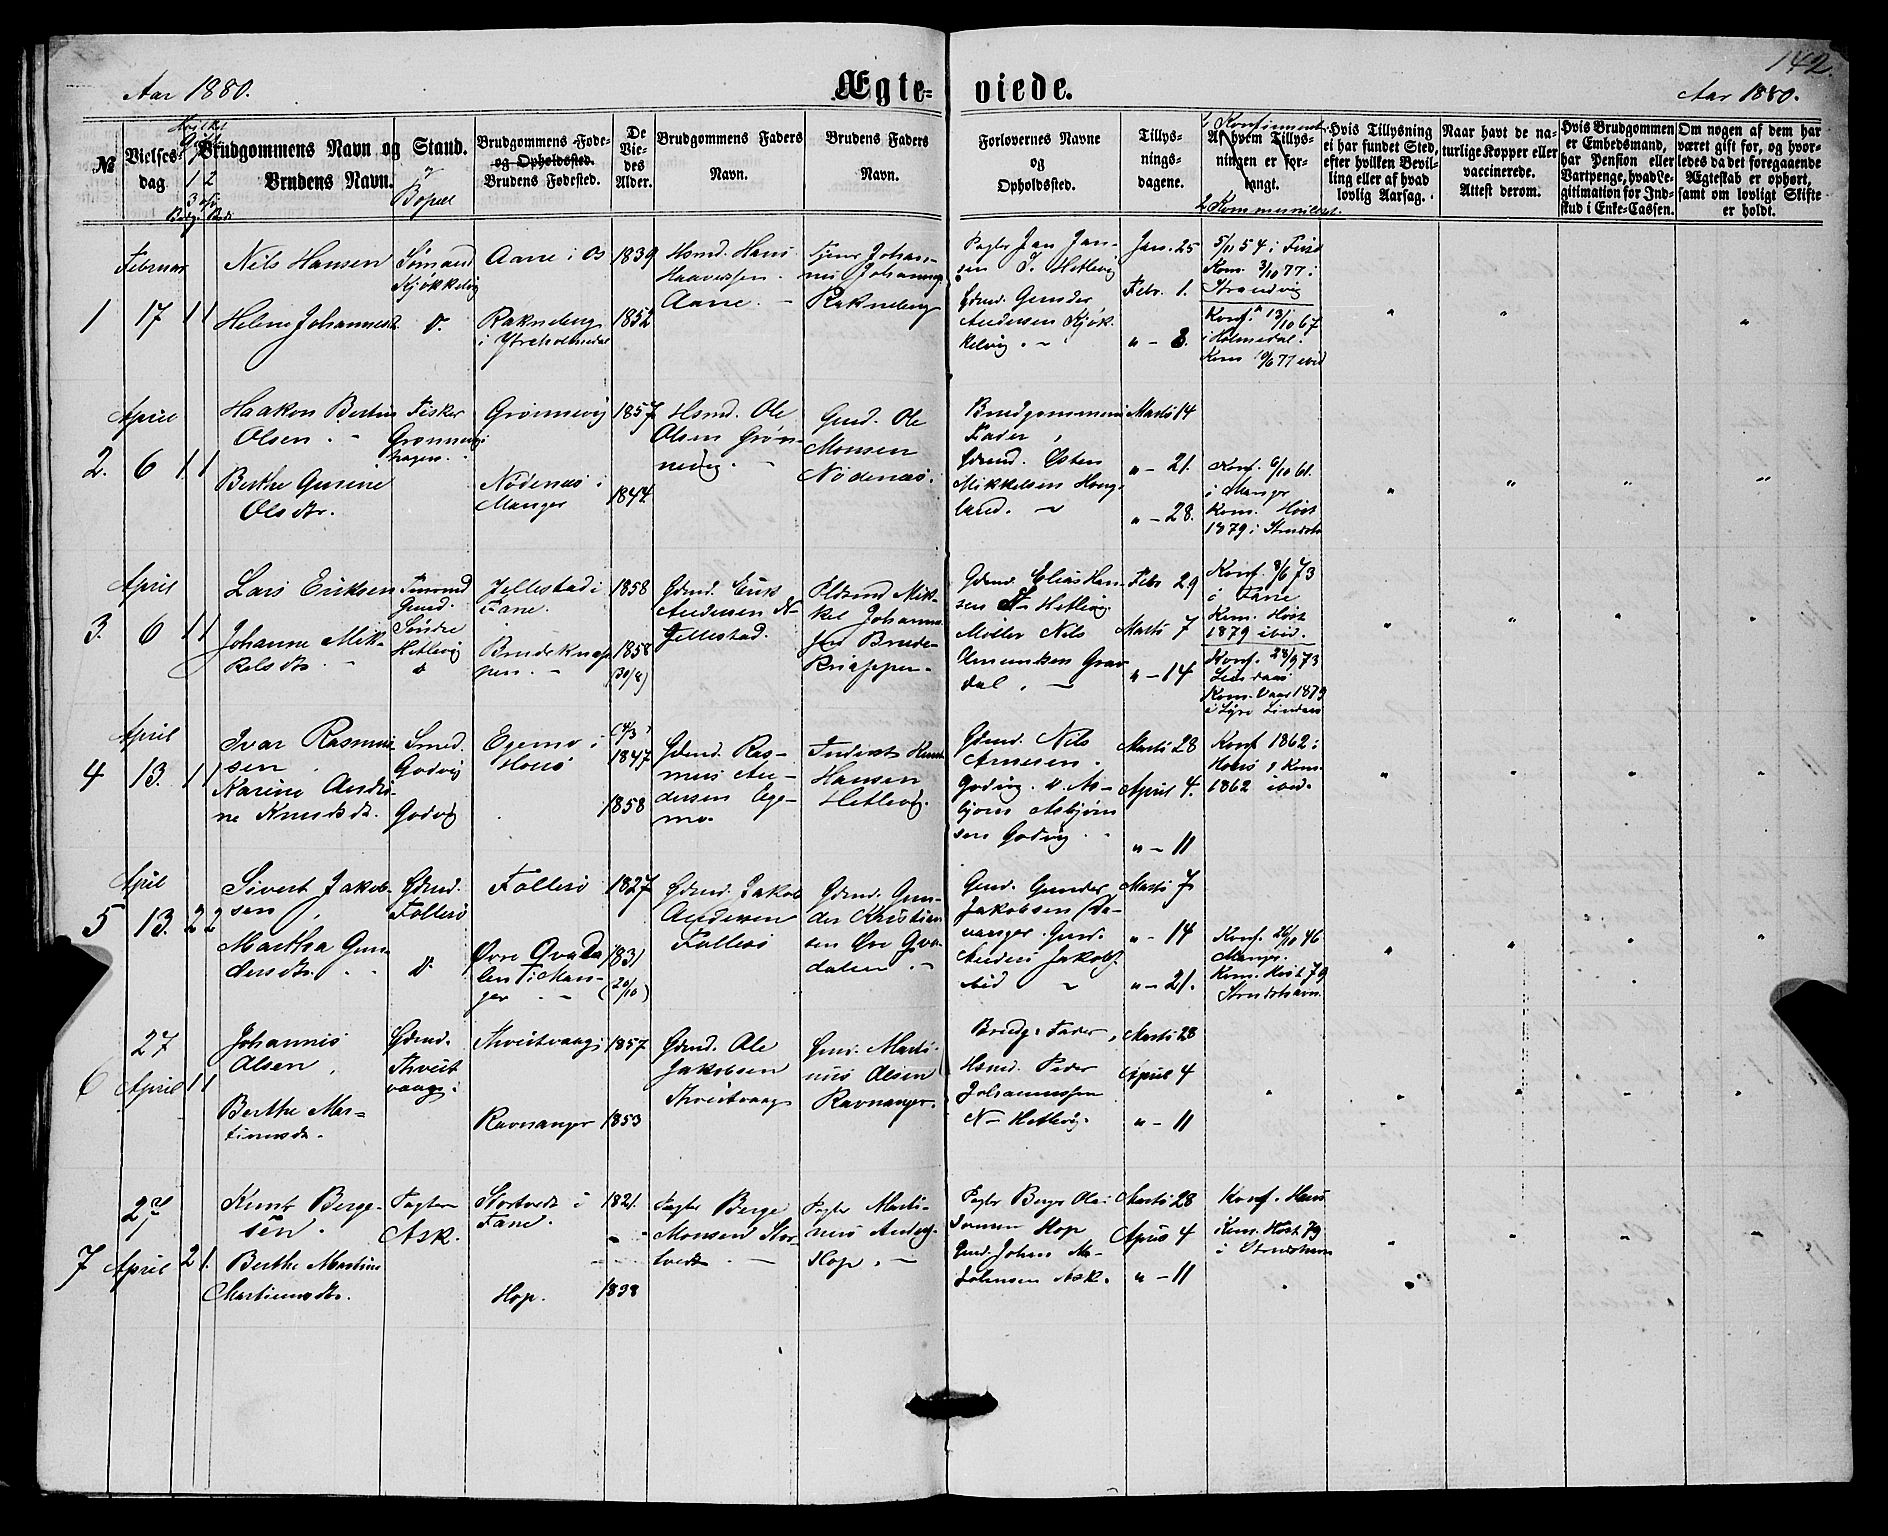 142.
Aar 1880.
Ægte-
viede.
Aar 1880.
No
Vielses-
dag
1 2
3 o/s
Brudgommens Navn og
Brudens Navn.
Stand.
Bopæl
Brudgommens Føde-
og Opholdssted.
Brudens Fødested.
De
Vie-
des
Alder.
Brudgommens Faders
Navn.
Brudens Faders
Navn.
Forlovernes Navne
og
Opholdssted.
Tillys-
nings-
dagene.
1, Konfirmeret
Af hvem Tillys-
ningen er for-
langt.
2 Kommuniceret.
Hvis Tillysning
ei har fundet Sted,
efter hvilken Bevil-
ling eller af hvad
lovlig Aarsag.
Naar havt de na-
turlige Kopper eller
vaccinerede.
Attest derom.
Hvis Brudgommen
er Embedsmand,
har Pension eller
Vartpenge, hvad Le-
gitimation for Ind-
skud i Enke-Cassen.
Om nogen af dem har
været gift før, og hvor-
ledes da det foregaaende
Ægteskab er ophørt,
samt om lovligt Skifte
er holdt.
1
Februar
17
1 1
Nils Hansen
Helene Johannesd.
Sømand
Kjøkkelvig
d.
Aane i Os
Rakneberg
i Ytreholmedal
1839
1852
Hsmd. Hans
Haavessen
Aane.
Johan-
nes Johannes
Rakneberg
Pagtr Jan Jan-
sen S. Hetlevig
Gdmd. Gunder
Andersen Kjøk-
kelvig.
Jan. 25
Febr. 1.
" - 8.
5/11 54 i Finds
Kom. 3/10 77 i
Strandvig
Konf. 13/10 67
i Holmedal.
Kom 10/6 77 ibid
2.
April
6
1 1
Haakon Bertin
Olsen.
Berthe Gurine
Olsdtr.
Fisker
Grønnevigs
hagen.
Grønnevig
Nødenes i
Manger
1857
1844
Hsmd. Ole
Olsen Grøn-
nevig.
Gmd. Ole
Monsen
Nødenes.
Brudgommens
Fader,
Gdmd. Østen
Mikkelsen Haug-
land.
Marts 14
" - 21.
" - 28.
Konf. 6/10 61.
i Manger
Kom. Høst
1879 i Strudsh
3.
April
6
1 1
Lars Eriksen
Johanne Mik-
kelsdtr
Tømmd
Gmd.
Søndre
Hetlevig
d
Jellestad i
Fane.
Brudeknap-
pen.
1858
1858
(30/8)
Gdmd. Erik
Andersen N-
Jellestad.
Mik-
kel Johanne-
sen Brude-
knappen.
Gdmd. Elias Han-
sen N- Hetlevig.
Møller Nils
Amundsen Grav-
dal.
Febr 29
Marts 7
" - 14
Konf. 8/6 73
i Fane
Kom. Høst
1879 ibid.
Konf. 28/9 73
Lindaas
Kom. Vaar 1879
4
April
13.
1 1
Ivar Rasmus-
sen,
Karine Andri-
ne Knudsdr.
Smed.
Godvig
Godvig
Egemo i
Hosø
(4/3)
1847
1858
Gdmd. Ras-
mus An-
dersen Ege-
mo.
Inderst Knud
Hansen
Hetlevig.
Gdmd. Nils
Arnesen.
Godvig. d. As-
bjørn Asbjørn-
sen Godvig.
Marts 28
April 4.
" - 11
Konf 1862 i
Kom.
1862 ibid.
5
April
13.
2 2
Sivert Jakob-
sen,
Martha Gun-
dersdtr.
Gdmd.
Follesø
d.
Follesø
Øvre Qvada-
len i Man-
ger
1827
1831
(20/10)
Gdmd. Jakob
Andersen
Follesø
Gdmd. Gun-
der Kristian-
sen Øvr Qva-
dalen.
Gmd. Gunder
Jakobsen Da-
vanger. Gmd.
Anders Jakobs.
ibid
Marts 7
" - 14
" - 21.
Konf. 26/10 46
Manger.
Kom. Høst 79
Strudshavn
6
27
April
1 1
Johannes
Olsen,
Berthe Mar-
tinusdr.
Gdmd.
Thveit
vaag.
Thveitvaag
Ravnanger
1857
1853
Gdmd. Ole
Jakobsen
Thveitvaag
Gmd. Marti-
nus Olsen
Ravnanger.
Brudg. Fader,
Hsmd. Peder
Johannessen
N- Hetlevig.
Marts 28
April 4
" - 11
7
27
April
2 1.
Knut Berge-
sen.
Berthe Martine
Martinusdtr.
Pagter
Ask.
Stortvedt i
Fane.
Hop.
1821.
1838
Pagtr Berge
Monsen Stor-
tvedt.
Pagtr Marti-
nus Anders-
Hop.
Pagtr Berge Ole-
Hop
Gmd. Johns Mo-
Johnsen Ask.
Marts 28
April 4
" - 11
Konf. Haus
Kom. Høst 79
i Strudshavn